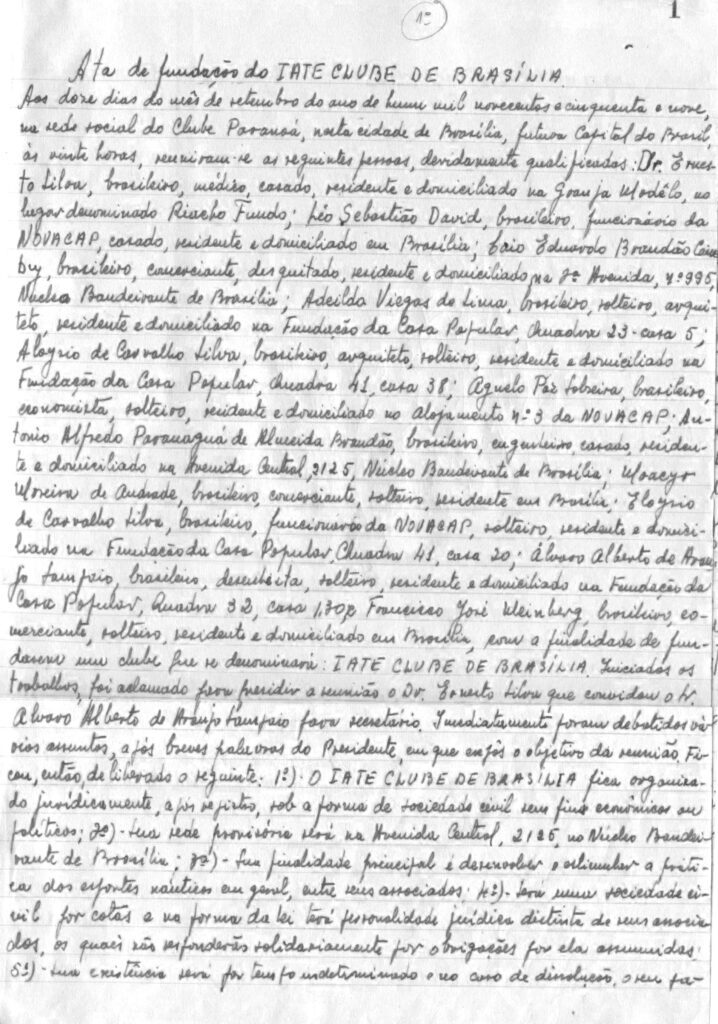 1º
1
Ata de fundação do IATE CLUBE DE BRASÍLIA
Aos doze dias do mês de setembro do ano de hum mil novecentos e cinquenta e nove,
na sede social do Clube Paranoá, nesta cidade de Brasília, futura Capital do Brasil,
às vinte horas, reuniram-se as seguintes pessoas, devidamente qualificadas: Dr. Ernes-
to Silva, brasileiro, médico, casado, residente e domiciliado na Granja Modêlo, no
lugar denominado Riacho Fundo; Léo Sebastião David, brasileiro, funcionário da
NOVACAP, casado, residente e domiciliado em Brasília; Caio Eduardo Brandão
brasileiro, comerciante, desquitado, residente e domiciliado na 2ª Avenida, nº 995,
Núcleo Bandeirante de Brasília; Adeildo Viegas de Lima, brasileiro, solteiro, arqui-
teto, residente e domiciliado na Fundação da Casa Popular, Quadra 23 - casa 5;
Aloysio de Carvalho Silva, brasileiro, arquiteto, solteiro, residente e domiciliado na
Fundação da Casa Popular, Quadra 41, casa 38; Agnelo Paz Sobreira, brasileiro,
economista, solteiro, residente e domiciliado no Alojamento nº 3 da NOVACAP; An-
tonio Alfredo Paranaguá de Almeida Brandão, brasileiro, engenheiro, casado, residen-
te e domiciliado na Avenida Central, 2125, Núcleo Bandeirante de Brasília; Moacyr
Moreira de Andrade, brasileiro, comerciante, solteiro, residente em Brasília; Eloysio
de Carvalho Silva, brasileiro, funcionário da NOVACAP, solteiro, residente e domici-
liado na Fundação da Casa Popular, Quadra 41, casa 20; Álvaro Alberto de Arau-
jo Sampaio, brasileiro, desenhista, solteiro, residente e domiciliado na Fundação da
Casa Popular, Quadra 32, casa Francisco José Kleinberg, brasileiro, co-
merciante, solteiro, residente e domiciliado em Brasília, com a finalidade de fun-
darem um clube que se denominará: IATE CLUBE DE BRASÍLIA. Iniciados os
trabalhos, foi aclamado para presidir a reunião o Dr. Ernesto Silva que convidou o Sr.
Alvaro Alberto de Araujo Sampaio para secretário. Imediatamente foram debatidos vá-
rios assuntos, após breves palavras do Presidente, em que expôs o objetivo da reunião. Fi-
cou, então, deliberado o seguinte: 1º) - O IATE CLUBE DE BRASÍLIA fica organiza-
do jurídicamente, após registro, sob a forma de sociedade civil sem fins econômicos ou
políticos; 2º) - Sua sede provisória será na Avenida Central, 2125, no Núcleo Bandei-
rante de Brasília; 3º) - Sua finalidade principal é desenvolver e estimular a práti-
ca dos esportes náuticos em geral, entre seus associados; 4º) - Será uma sociedade ci-
vil por cotas e na forma da lei terá personalidade jurídica distinta de seus associa-
dos, os quais não responderão solidariamente por obrigações por ela assumidas;
5º) - Sua existência será por tempo indeterminado e no caso de dissolução, o seu pa-